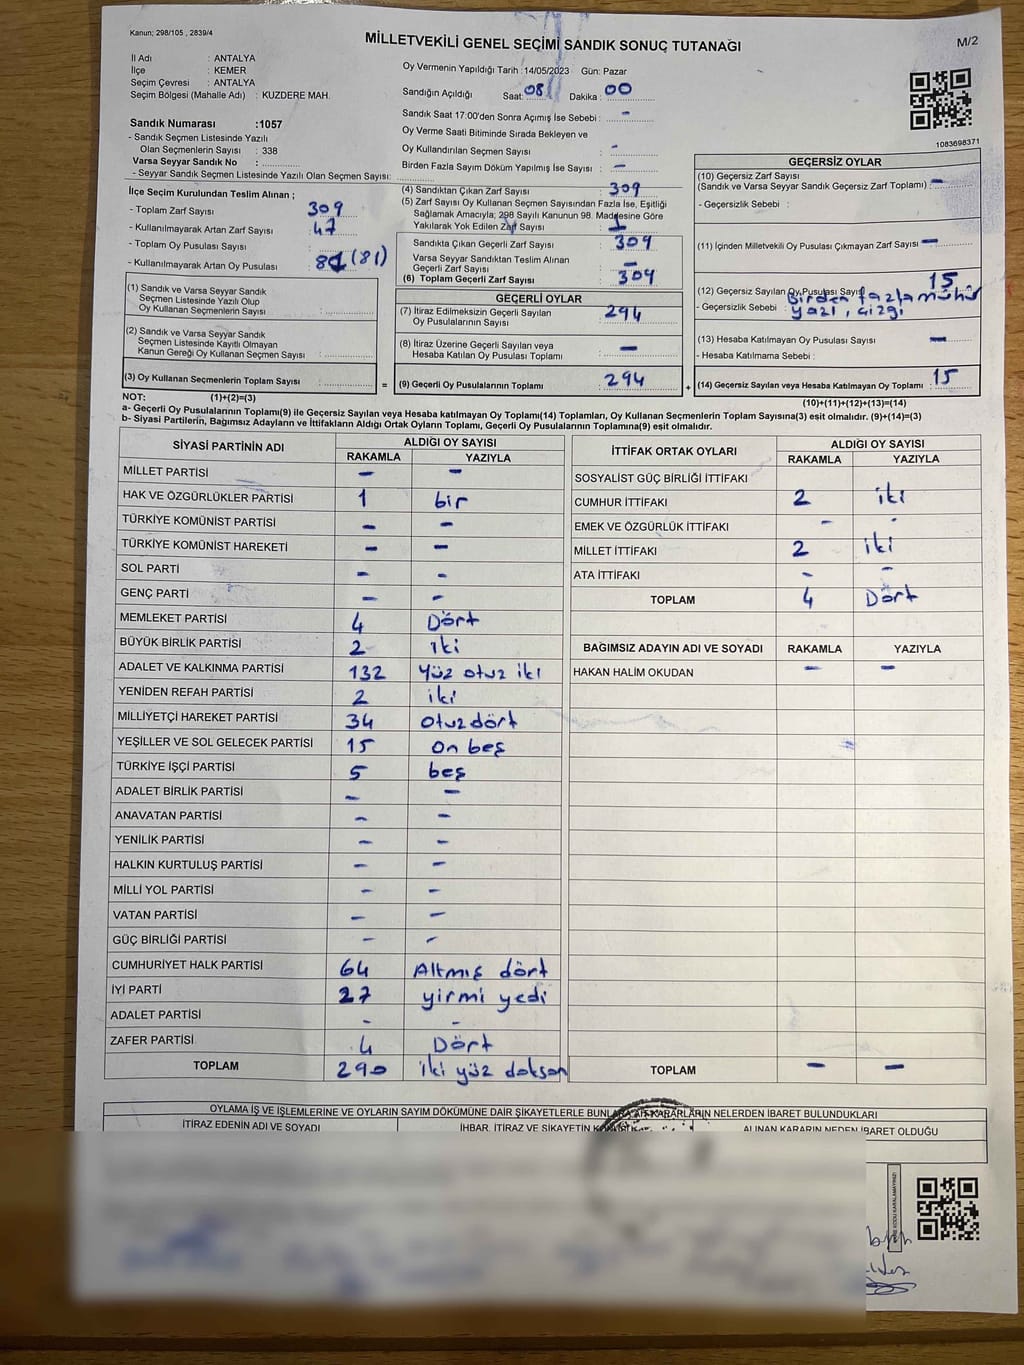 Kanun; 298/105 , 2839/4
MİLLETVEKİLİ GENEL SEÇİMİ SANDIK SONUÇ TUTANAĞI
M/2
İl Adı : ANTALYA
İlçe : KEMER
Seçim Çevresi : ANTALYA
Seçim Bölgesi (Mahalle Adı) : KUZDERE MAH.
Oy Vermenin Yapıldığı Tarih :14/05/2023 Gün: Pazar
Sandığın Açıldığı Saat: 08 Dakika : 00
Sandık Saat 17:00'den Sonra Açımış İse Sebebi : -
Oy Verme Saati Bitiminde Sırada Bekleyen ve
Oy Kullandırılan Seçmen Sayısı : -
Birden Fazla Sayım Döküm Yapılmış İse Sayısı : -
1083698371
Sandık Numarası :1057
- Sandık Seçmen Listesinde Yazılı
Olan Seçmenlerin Sayısı : 338
Varsa Seyyar Sandık No :
- Seyyar Sandık Seçmen Listesinde Yazılı Olan Seçmen Sayısı:
İlçe Seçim Kurulundan Teslim Alınan ;
- Toplam Zarf Sayısı 309
- Kullanılmayarak Artan Zarf Sayısı : 47
- Toplam Oy Pusulası Sayısı :
- Kullanılmayarak Artan Oy Pusulası : (81)
(1) Sandık ve Varsa Seyyar Sandık
Seçmen Listesinde Yazılı Olup
Oy Kullanan Seçmenlerin Sayısı :
(2) Sandık ve Varsa Seyyar Sandık
Seçmen Listesinde Kayıtlı Olmayan
Kanun Gereği Oy Kullanan Seçmen Sayısı :
(3) Oy Kullanan Seçmenlerin Toplam Sayısı :
=
(4) Sandıktan Çıkan Zarf Sayısı : 309
(5) Zarf Sayısı Oy Kullanan Seçmen Sayısından Fazla İse, Eşitliği
Sağlamak Amacıyla; 298 Sayılı Kanunun 98. Maddesine Göre
Yakılarak Yok Edilen Zarf Sayısı : 1
Sandıkta Çıkan Geçerli Zarf Sayısı : 309
Varsa Seyyar Sandıktan Teslim Alınan
Geçerli Zarf Sayısı : -
(6) Toplam Geçerli Zarf Sayısı : 309
GEÇERLİ OYLAR
(7) İtiraz Edilmeksizin Geçerli Sayılan
Oy Pusulalarının Sayısı : 294
(8) İtiraz Üzerine Geçerli Sayılan veya
Hesaba Katılan Oy Pusulası Toplamı : -
(9) Geçerli Oy Pusulalarının Toplamı : 294
+
GEÇERSİZ OYLAR
(10) Geçersiz Zarf Sayısı
(Sandık ve Varsa Seyyar Sandık Geçersiz Zarf Toplamı) : -
- Geçersizlik Sebebi :
(11) İçinden Milletvekili Oy Pusulası Çıkmayan Zarf Sayısı : -
(12) Geçersiz Sayılan Oy Pusulası Sayısı : 15
- Geçersizlik Sebebi : Birden fazla mühür
yazı, çizgi
(13) Hesaba Katılmayan Oy Pusulası Sayısı : -
- Hesaba Katılmama Sebebi :
(14) Geçersiz Sayılan veya Hesaba Katılmayan Oy Toplamı : 15
NOT: (1)+(2)=(3)
(10)+(11)+(12)+(13)=(14)
a- Geçerli Oy Pusulalarının Toplamı(9) ile Geçersiz Sayılan veya Hesaba katılmayan Oy Toplamı(14) Toplamları, Oy Kullanan Seçmenlerin Toplam Sayısına(3) eşit olmalıdır. (9)+(14)=(3)
b- Siyasi Partilerin, Bağımsız Adayların ve İttifakların Aldığı Ortak Oyların Toplamı, Geçerli Oy Pusulalarının Toplamına(9) eşit olmalıdır.
SİYASİ PARTİNİN ADI ALDIĞI OY SAYISI
RAKAMLA YAZIYLA
MİLLET PARTİSİ - -
HAK VE ÖZGÜRLÜKLER PARTİSİ 1 bir
TÜRKİYE KOMÜNİST PARTİSİ - -
TÜRKİYE KOMÜNİST HAREKETİ - -
SOL PARTİ - -
GENÇ PARTİ - -
MEMLEKET PARTİSİ 4 Dört
BÜYÜK BİRLİK PARTİSİ 2 iki
ADALET VE KALKINMA PARTİSİ 132 Yüz otuz iki
YENİDEN REFAH PARTİSİ 2 iki
MİLLİYETÇİ HAREKET PARTİSİ 34 otuz dört
YEŞİLLER VE SOL GELECEK PARTİSİ 15 on beş
TÜRKİYE İŞÇİ PARTİSİ 5 beş
ADALET BİRLİK PARTİSİ - -
ANAVATAN PARTİSİ - -
YENİLİK PARTİSİ - -
HALKIN KURTULUŞ PARTİSİ - -
MİLLİ YOL PARTİSİ - -
VATAN PARTİSİ - -
GÜÇ BİRLİĞİ PARTİSİ - -
CUMHURİYET HALK PARTİSİ 64 Altmış dört
İYİ PARTİ 27 yirmi yedi
ADALET PARTİSİ - -
ZAFER PARTİSİ 4 Dört
TOPLAM 290 iki yüz doksan
İTTİFAK ORTAK OYLARI ALDIĞI OY SAYISI
RAKAMLA YAZIYLA
SOSYALİST GÜÇ BİRLİĞİ İTTİFAKI
CUMHUR İTTİFAKI 2 iki
EMEK VE ÖZGÜRLÜK İTTİFAKI - -
MİLLET İTTİFAKI 2 iki
ATA İTTİFAKI - -
TOPLAM 4 Dört
BAĞIMSIZ ADAYIN ADI VE SOYADI RAKAMLA YAZIYLA
HAKAN HALİM OKUDAN - -
TOPLAM - -
OYLAMA İŞ VE İŞLEMLERİNE VE OYLARIN SAYIM DÖKÜMÜNE DAİR ŞİKAYETLERLE BUNLARA AİT KARARLARIN NELERDEN İBARET BULUNDUKLARI
İTİRAZ EDENİN ADI VE SOYADI
İHBAR, İTİRAZ VE ŞİKAYETİN KONUSU
ALINAN KARARIN NEDEN İBARET OLDUĞU